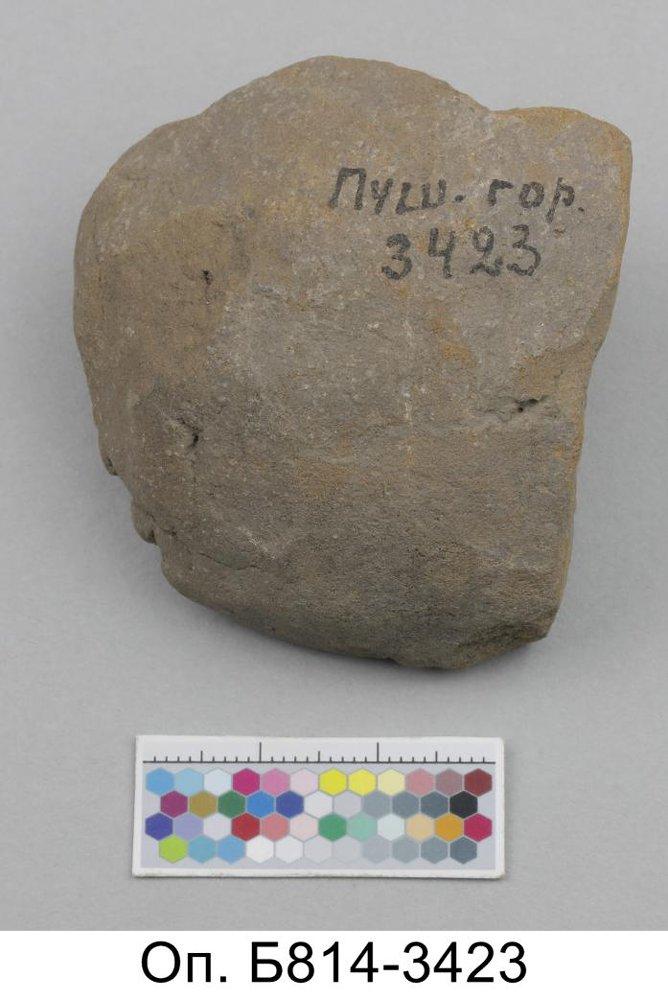 Пуш. гор.
3423
Оп. Б814-3423